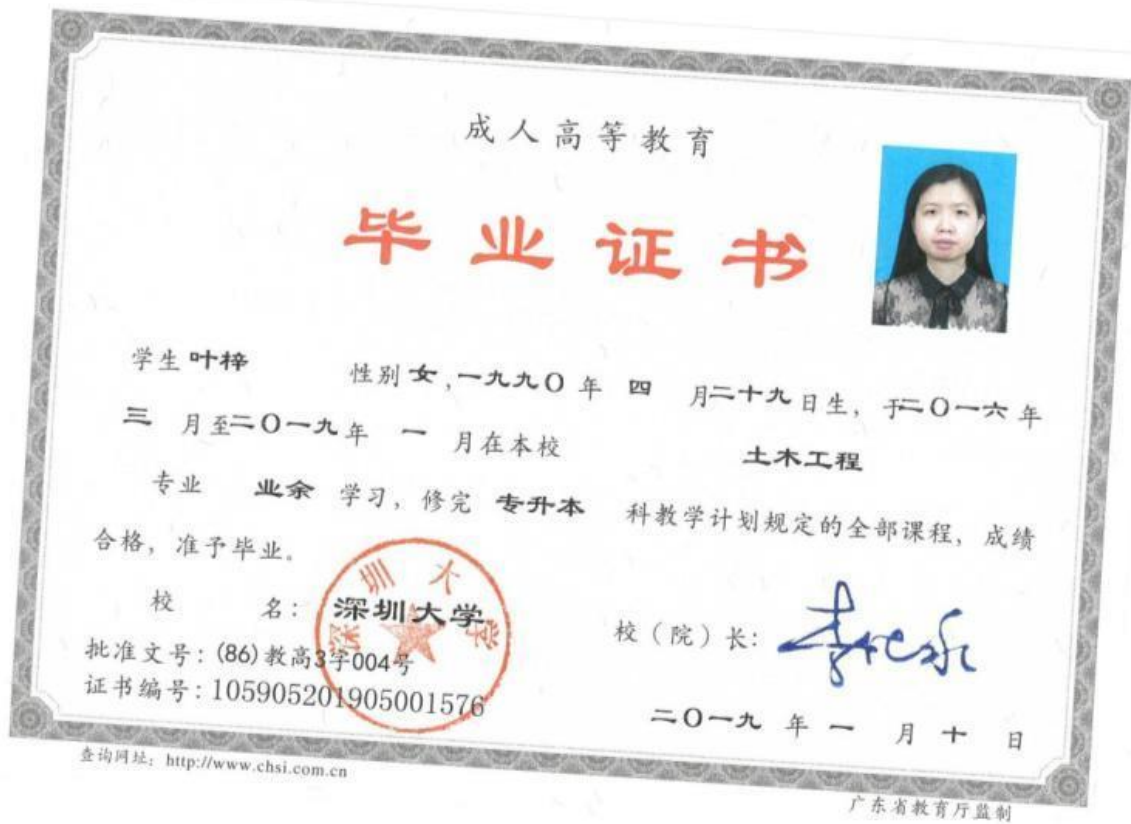 成人高等教育
毕业证书
学生 叶梓 性别 女,一九九〇 年 四 月二十九日生,于二〇一六年
三 月至二〇一九年 一 月在本校 土木工程
专业 业余 学习,修完 专升本 科教学计划规定的全部课程,成绩
合格,准予毕业。
校 名: 深圳大学
深圳大学
校(院)长:
批准文号:(86)教高3字004号
证书编号:105905201905001576
二〇一九 年 一 月 十 日
查询网址:http://www.chsi.com.cn
广东省教育厅监制